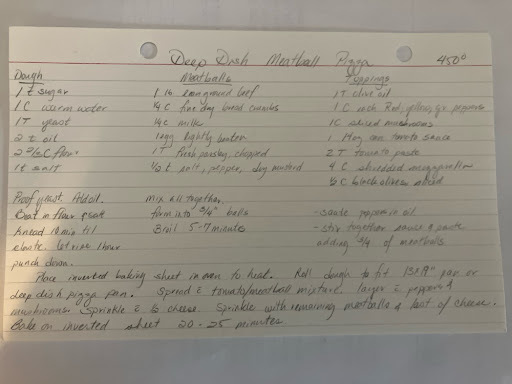 Deep Dish Meatball Pizza 450°
Dough Meatballs Toppings
1 t sugar 1 lb lean ground beef 1 T olive oil
1 C warm water 1/4 C fine dry bread crumbs 1 C each Red, yellow, gr peppers
1 T yeast 1/4 C milk 1C sliced mushrooms
2 t oil 1 egg lightly beaten 1 can tomato sauce
2 C flour 1 T fresh parsley, chopped 2 T tomato paste
1 t salt 1/2 t salt, pepper, dry mustard 4 C shredded mozzarella
1/2 C black olives sliced
Proof yeast. Add oil. mix all together,
Beat in flour & salt form into 3/4" balls - saute peppers in oil
knead 10 min til Broil 5-7 minutes - stir together sauce & paste
elastic. let rise 1 hour adding 3/4 of meatballs
punch down.
Place inverted baking sheet in oven to heat. Roll dough to fit 13x9" pan or
deep dish pizza pan. Spread c tomato/meatball mixture layer c peppers &
mushrooms. Sprinkle c 1/2 cheese. Sprinkle with remaining meatballs & last of cheese.
Bake on inverted sheet 20-25 minutes.